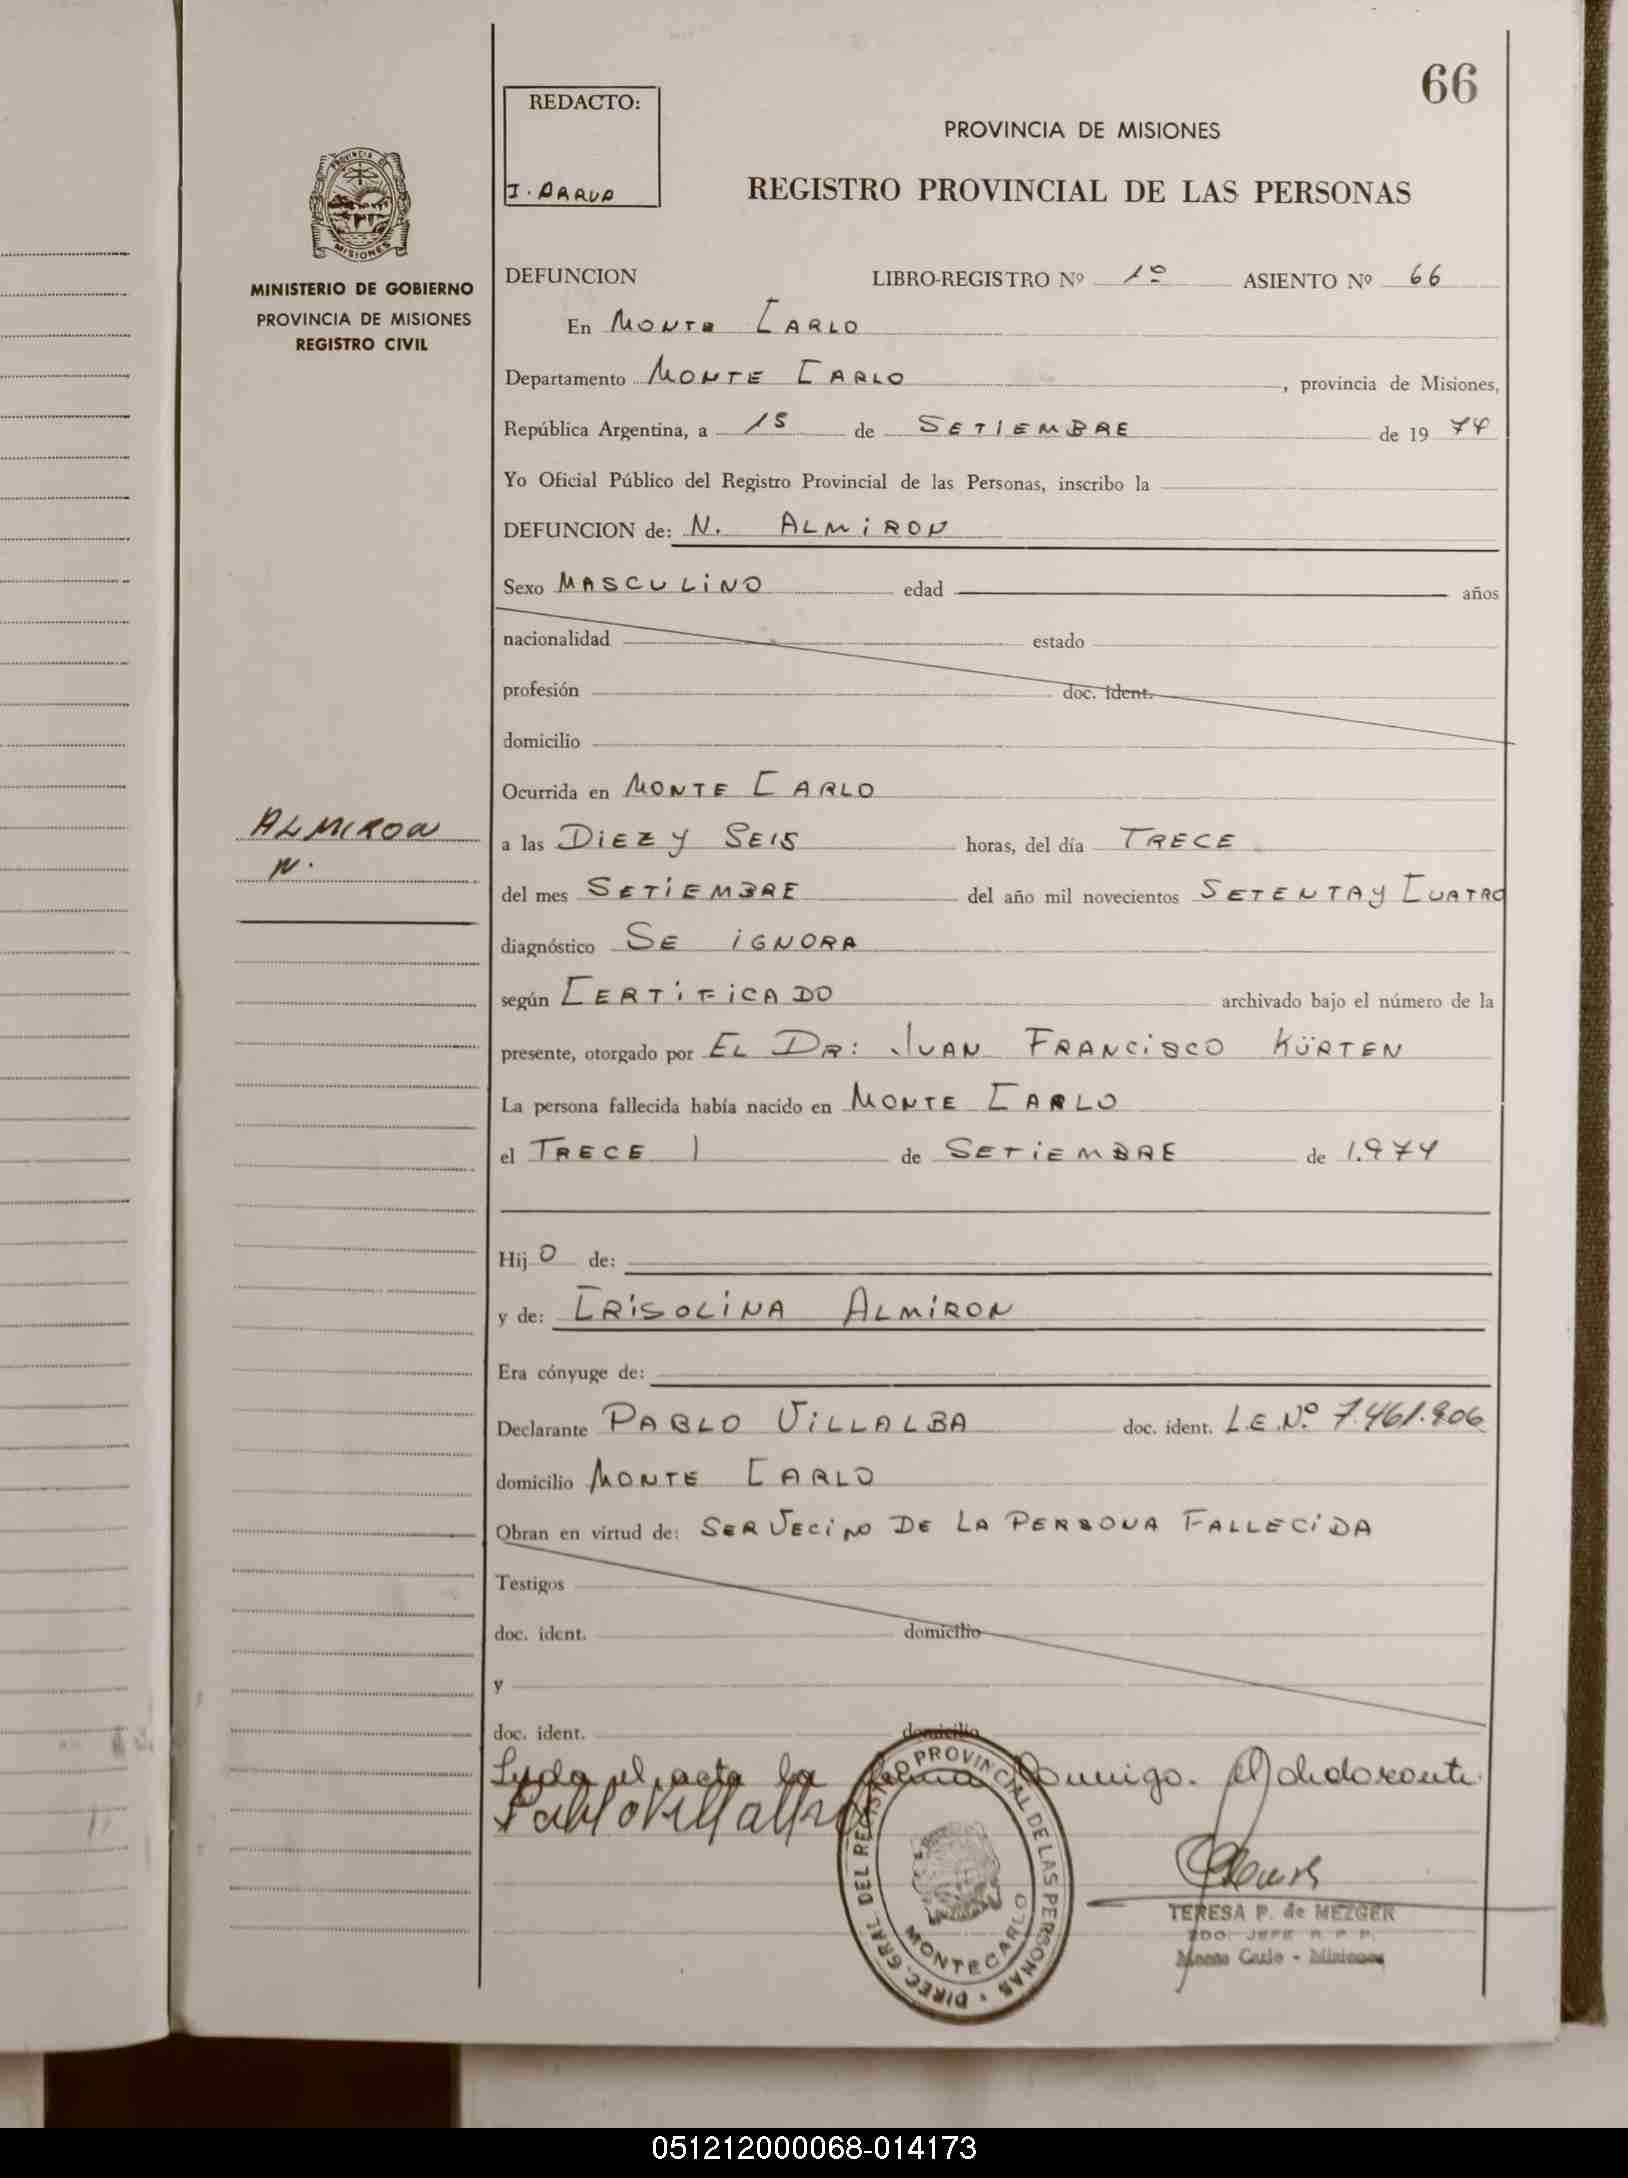 66
REDACTO:
PROVINCIA DE MISIONES
REGISTRO PROVINCIAL DE LAS PERSONAS
PROVINCIA DE
MISIONES
MINISTERIO DE GOBIERNO
PROVINCIA DE MISIONES
REGISTRO CIVIL
DEFUNCION LIBRO-REGISTRO Nº 1º ASIENTO Nº 66
En MONTE CARLO
Departamento MONTE CARLO, provincia de Misiones,
República Argentina, a 15 de SETIEMBRE de 19 74
Yo Oficial Público del Registro Provincial de las Personas, inscribo la
DEFUNCION de: N. ALMIRON
Sexo MASCULINO edad años
nacionalidad estado
profesión doc. ident.
domicilio
Ocurrida en MONTE CARLO
ALMIRON
N.
a las DIEZ Y SEIS horas, del día TRECE
del mes SETIEMBRE del año mil novecientos SETENTA Y CUATRO
diagnóstico SE IGNORA
según CERTIFICADO archivado bajo el número de la
presente, otorgado por EL DR: JUAN FRANCISCO KÜRTEN
La persona fallecida había nacido en MONTE CARLO
el TRECE de SETIEMBRE de 1.974
Hij O de:
y de: CRISOLINA ALMIRON
Era cónyuge de:
Declarante PABLO VILLALBA doc. ident. L.E.Nº 7.461.906
domicilio MONTE CARLO
Obran en virtud de: SER VECINO DE LA PERSONA FALLECIDA
Testigos
doc. ident. domicilio
y
doc. ident. domicilio
Leyda el acta la firma conmigo. El declarante
Pablo Villalba
DIREC. GRAL. DEL REGISTRO PROVINCIAL DE LAS PERSONAS
MONTECARLO
TERESA P. de MEZGER
Monte Carlo - Misiones
051212000068-014173